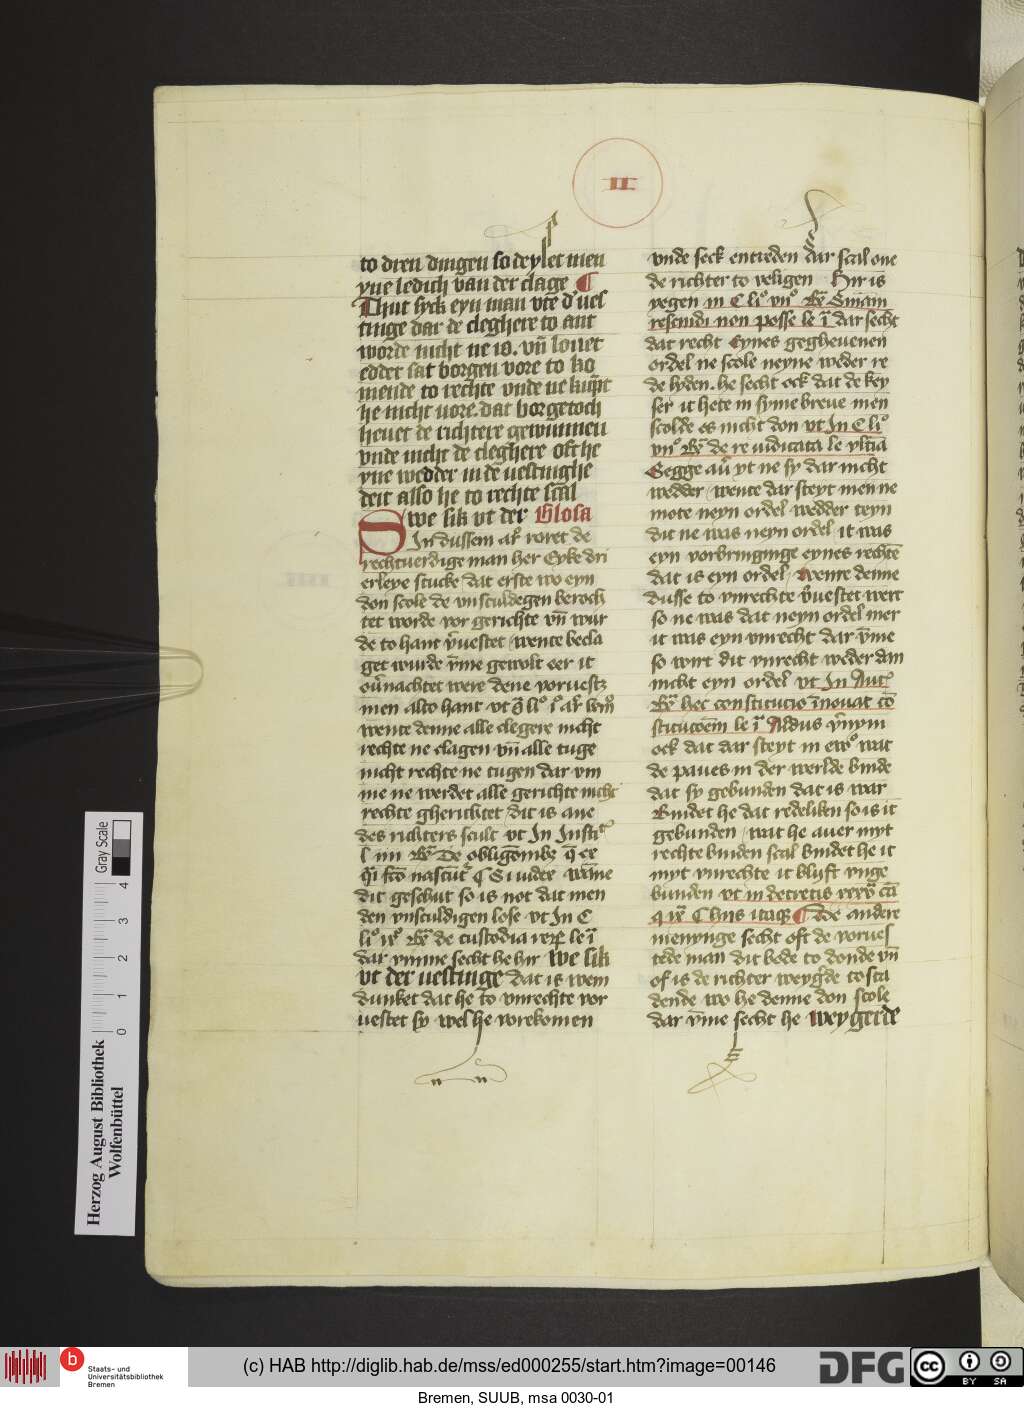 II
to dren dingen so deylet men
yne ledich van der clage ¶
Thut syck eyn man vte d' ves
tinge dar de cleghere to ant
worde nicht ne is. vn̄ louet
edder sat borgen vore to ko
mende to rechte vnde ne kūpt
he nicht vore. dat borgetoch
heuet de richtere gewunnen
vnde nicht de cleghere oft he
yne wedder in de uestinghe
deit also he to rechte scal
Swe sik vt der Glosa
In dussem ar' roret de
rechtuerdige man her Eyke dri
erleye stucke dat erste wo eyn
don scole de vnsculdegen beroch
tet worde vor gerichte vn̄ wur
de to hant v̄uestet wente becla
get wurde v̄me gewolt eer it
ou'nachtet were dene voruestz
men alto hant
wente denne alle clegere nicht
rechte ne clagen vn̄ alle tuge
nicht rechte ne tugen dar vm
me ne werdet alle gerichte nicht
rechte gherichtet dit is ane
des richters scult vt In Insti
l iiii De obligōnibz
nascūt' ¶ Si iudex
dit geschut so is not dat men
den vnsculdigen lose vt In C
li° ix° de custodia rerū le i
dar ynnne secht he hir we sik
vt der uestinge dat is wem
dunket dat he to vnrechte vor
uestet sy wel he vorekomen
vnde seck entreden dar scal one
de richter to veligen Hir is
yegen in C li° vii° Sniam
rescindi non posse le i dar secht
dat recht Eynes gegheuenen
ordel ne scole neyne weder re
de lyden. he secht ock dat de key
ser it hete in syme breue men
scolde es nicht don vt In C li°
vii° de re iudicata le vltia
Segge au' yt ne sy dar nicht
wedder wente dar steyt men ne
mote neyn ordel wedder teyn
dit ne was neyn ordel it was
eyn vorbringinge eynes rechtē
dat is eyn ordel wenre denne
dusse to vnrechte v̄uestet wert
so ne was dat neyn ordel mer
it was eyn vnrecht dar v̄me
so wirt dit vnrecht weder dan
nicht eyn ordel vt In Aut'
hec constitucio īnouat cō
stitucōem le i Aldus v'nym
ock dat dar steyt in ew° wat
de paues in der werlde binde
dat sy gebunden dat is war
Bindet he dat redeliken so is it
gebunden wat he auer myt
rechte binden scal bindet he it
myt vnrechte it blyft vnge
bunden vt in decretis
¶ De andere
menynge secht oft de vorues
tede man dit bede to donde vn̄
of is de richter weygerde to sta
dende wo he denne don scole
dar v̄me secht he weygerde
Herzog August Bibliothek
Wolfenbüttel
0 1 2 3 4
Gray Scale
b
Staats- und
Universitätsbibliothek
Bremen
(c) HAB http://diglib.hab.de/mss/ed000255/start.htm?image=00146
DFG
cc BY SA
Bremen, SUUB, msa 0030-01